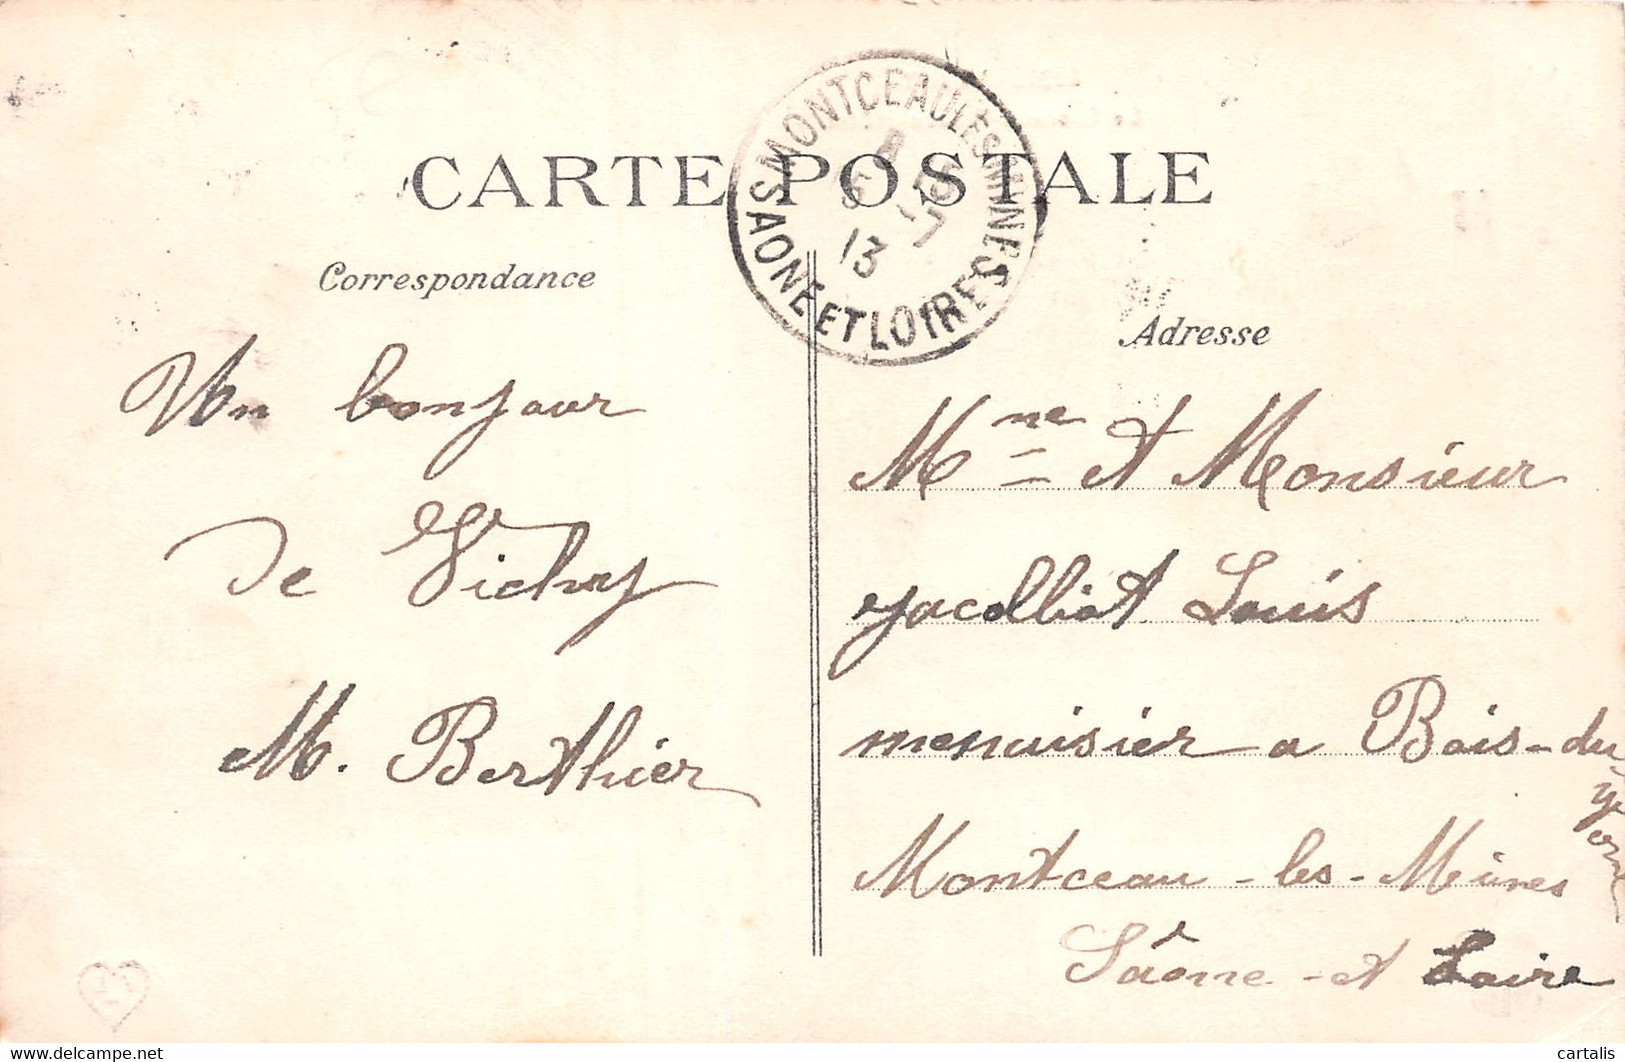 CARTE POSTALE
MONTCEAU LES MINES
SAONE ET LOIRE
13
Correspondance
Adresse
Un bonjour
de Vichy
M. Berthier
Mme et Monsieur
Jacolliot Louis
menuisier a Bois-du
Montceau-les-Mines
Saône-et Loire
www.delcampe.net
cartalis